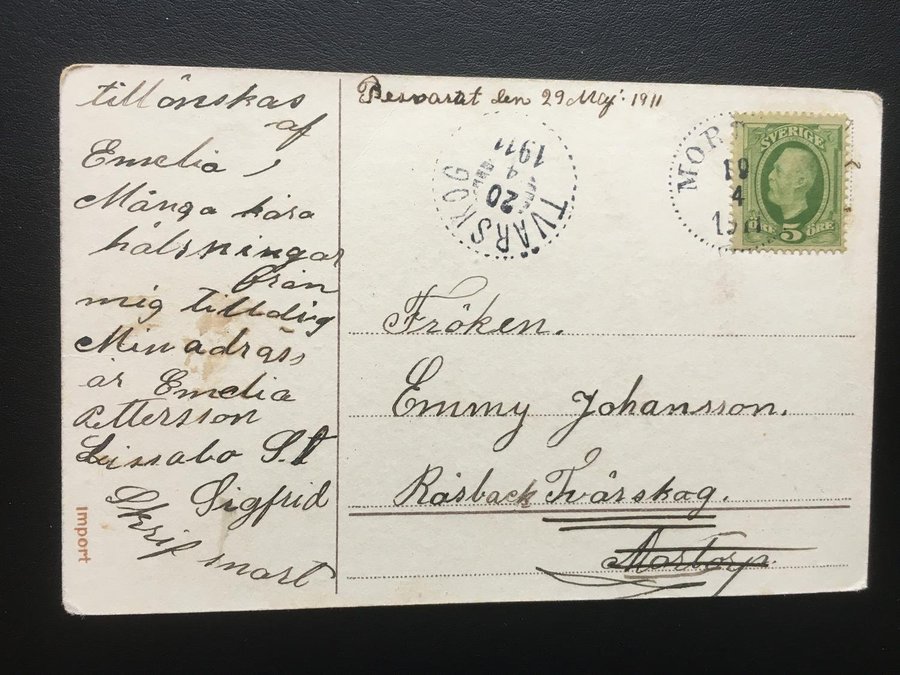 tillönskas
af
Emelia,
Många kära
hälsningar
från
mig till dig
Min adräss
är Emelia
Pettersson
Lissabo S.t
Sigfrid
Skrif snart
Import
Besvarat den 29 Maj. 1911
TVÄRSKOG
20
4
1911
MOR
19
4
1911
SVERIGE
5 ÖRE
Fröken.
Emmy Johansson.
Råsback Tvärskog.
Mortorp.